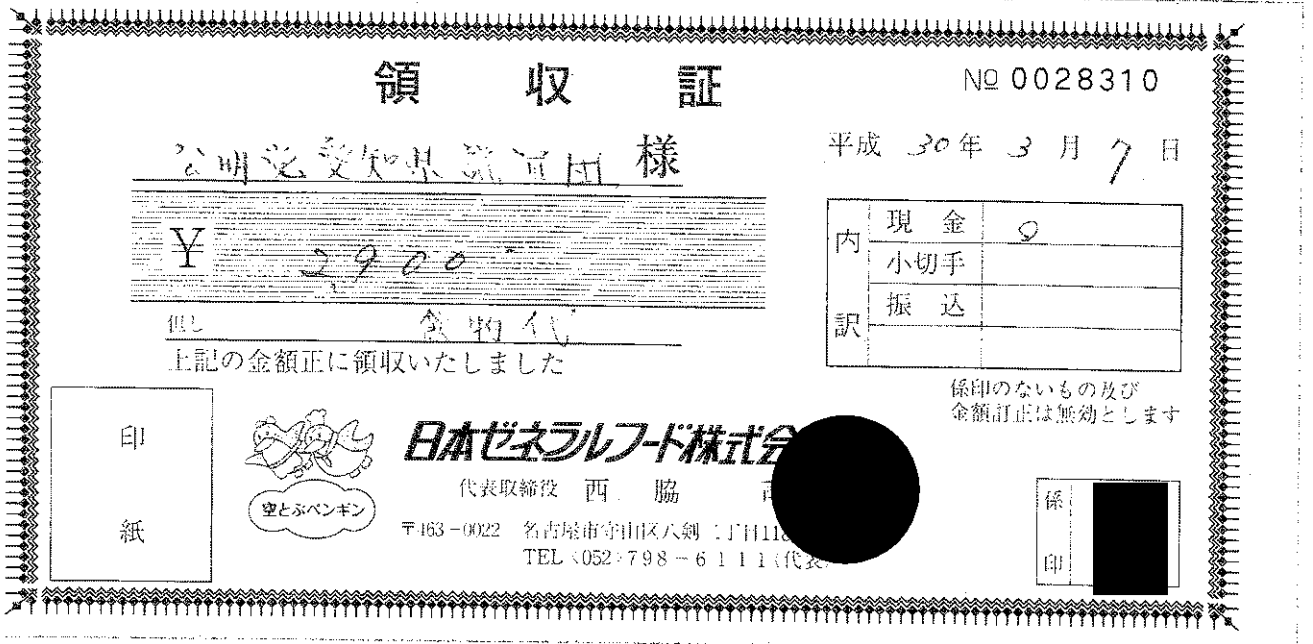 領収証
№ 0028310
公明党愛知県議員団 様
平成 30年 3月 7日
¥ 2,900-
但し 食物代
上記の金額正に領収いたしました
内訳
現金
小切手
振込
係印のないもの及び
金額訂正は無効とします
印紙
空とぶペンギン
日本ゼネラルフード株式会
代表取締役 西脇
〒463-0022 名古屋市守山区八剣二丁目118
TEL〈052〉798-6111(代表
係印